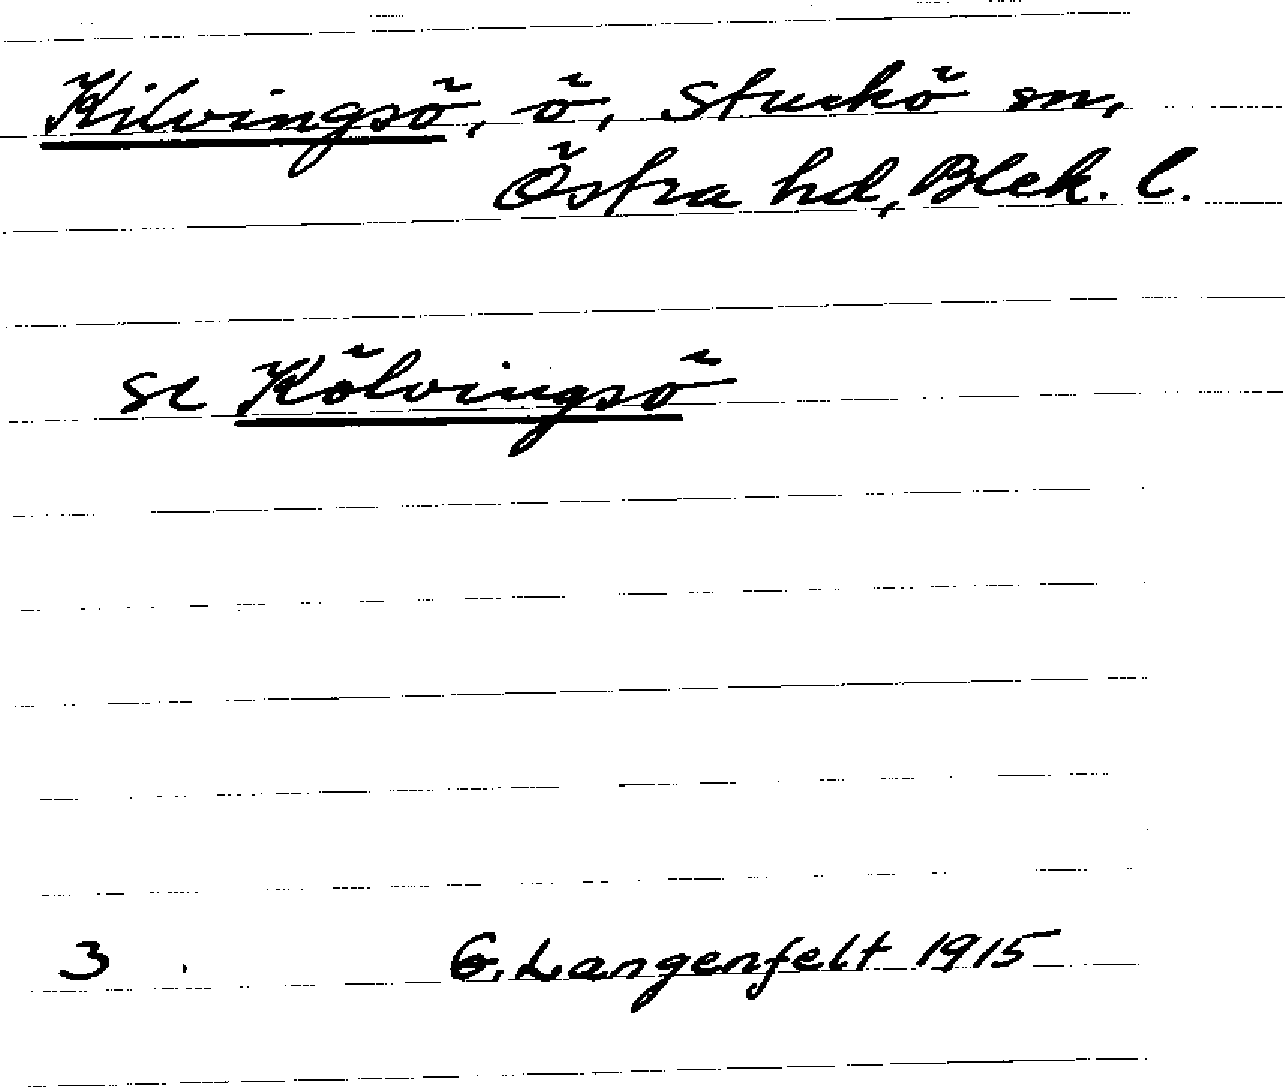 Kilvingsö, ö, Sturkö sn,
Östra hd, Blek. l.
se Kölvingsö
3 G. Langenfelt 1915